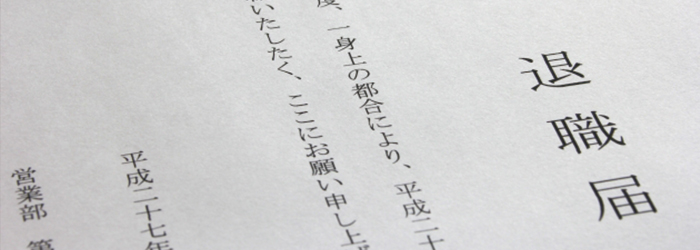 退職届
度、一身上の都合により、平成二十
いたしたく、ここにお願い申し上げ
平成二十七年
営業部 第